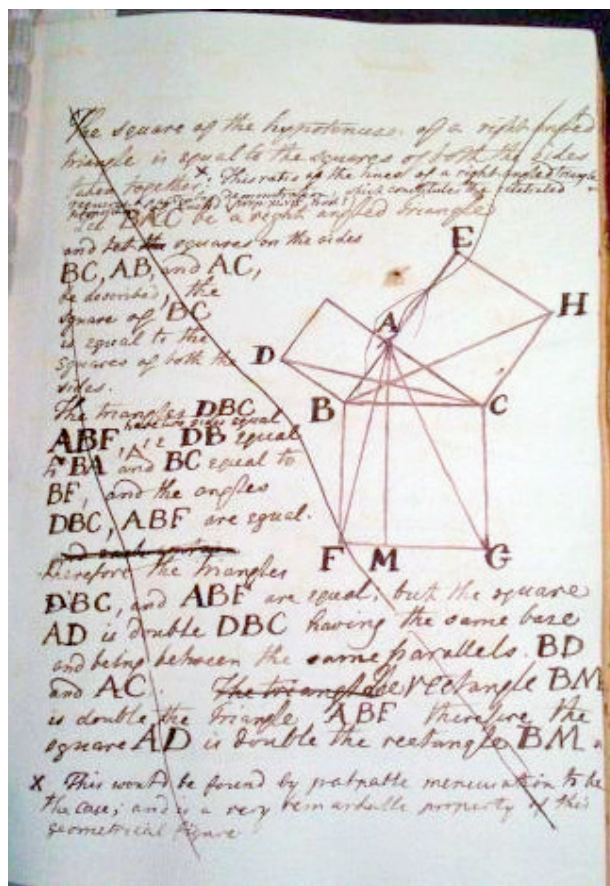 The square of the hypotenuse of a right angled
triangle is equal to the squares of both the sides
taken together. x This ratio of the lines of a right angled triangle
demonstration, which constitutes the celebrated
Let BAC be a right angled triangle
and let the squares on the sides
BC, AB, and AC,
be described, the
square of BC
is equal to the
squares of both the
sides.
The triangles DBC
have two sides equal
ABF, DB equal
to BA and BC equal to
BF, and the angles
DBC, ABF are equal.
therefore the triangles
DBC, and ABF are equal, but the square
AD is double DBC having the same base
and being between the same parallels. BD
and AC. The triangle rectangle BM
is double the triangle ABF therefore the
square AD is double the rectangle BM.
X This would be found by palpable mensuration to be
the case; and is a very remarkable property of this
geometrical figure
E
H
A
D
B
C
F
M
G